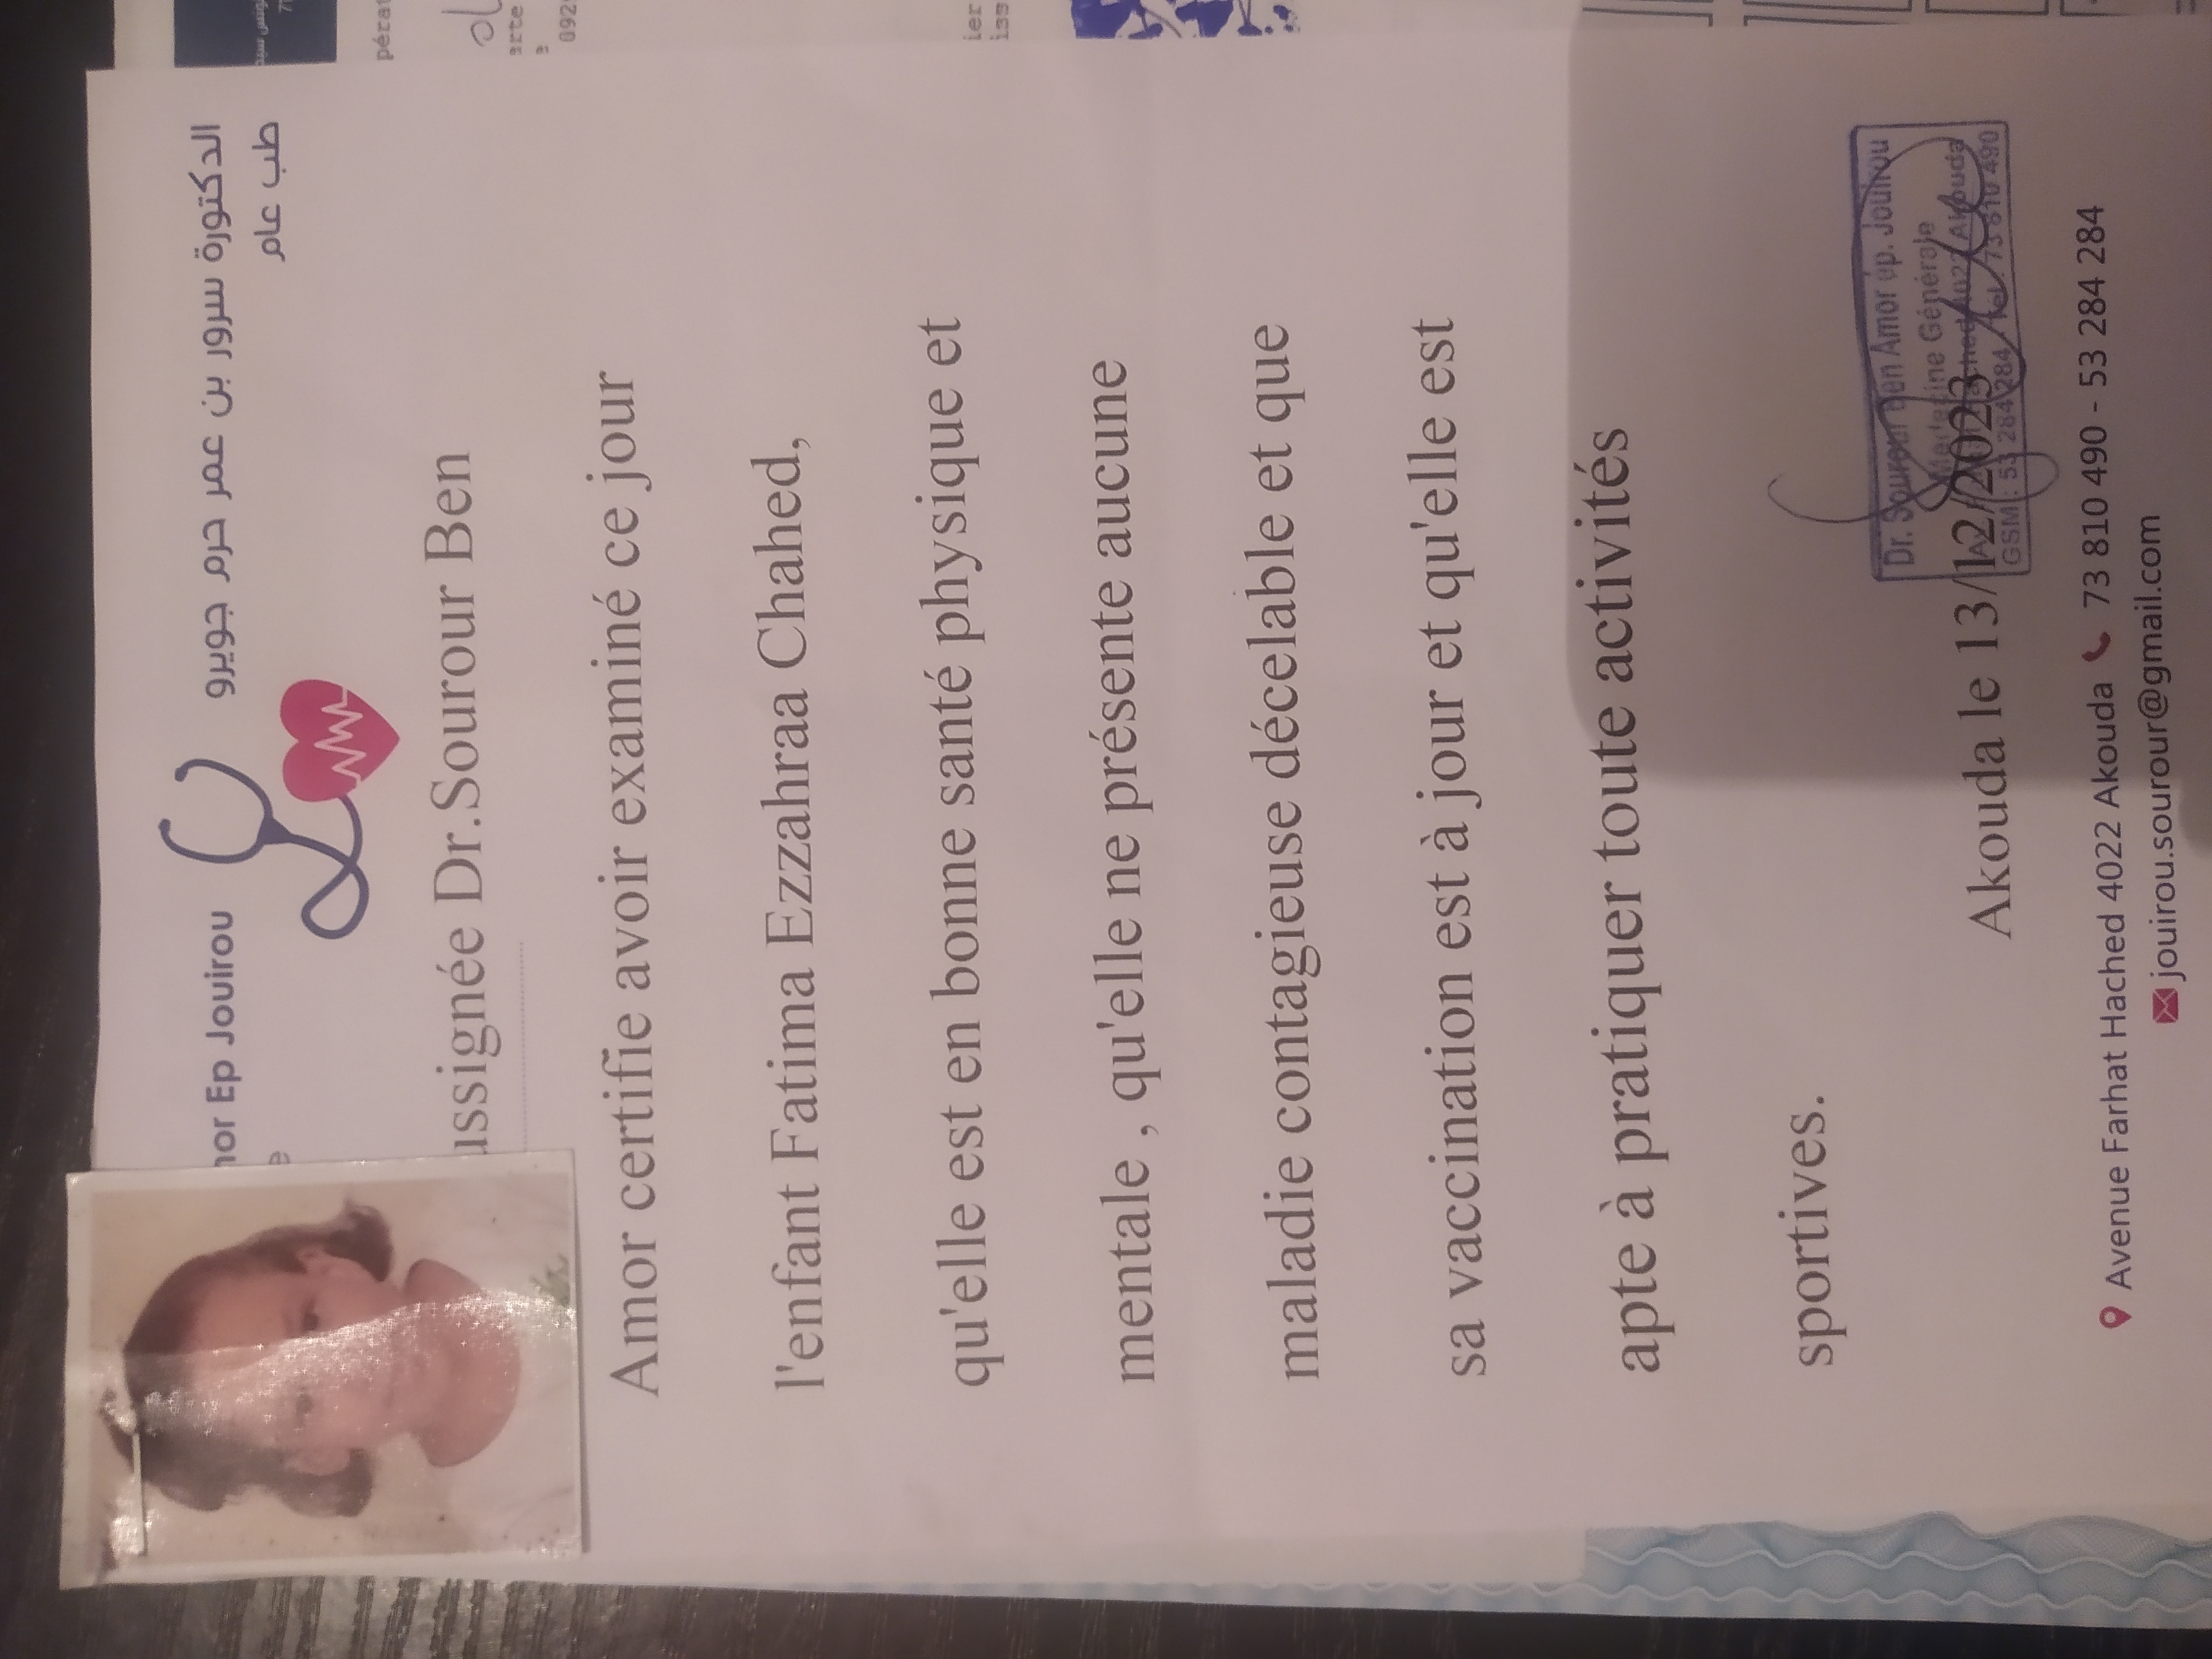 الدكتورة سرور بن عمر حرم جويرو
طب عام
nor Ep Jouirou
e
ussignée Dr.Sourour Ben
Amor certifie avoir examiné ce jour
l'enfant Fatima Ezzahraa Chahed,
qu'elle est en bonne santé physique et
mentale , qu'elle ne présente aucune
maladie contagieuse décelable et que
sa vaccination est à jour et qu'elle est
apte à pratiquer toute activités
sportives.
Dr. Sourour Ben Amor ép. Jouirou
Médecine Générale
Hached 4022 Akouda
GSM : 53 284 284 Tel : 73 810 490
Akouda le 13/12/2023
Avenue Farhat Hached 4022 Akouda 73 810 490 - 53 284 284
jouirou.sourour@gmail.com
pérat
arte
092
ier
iss